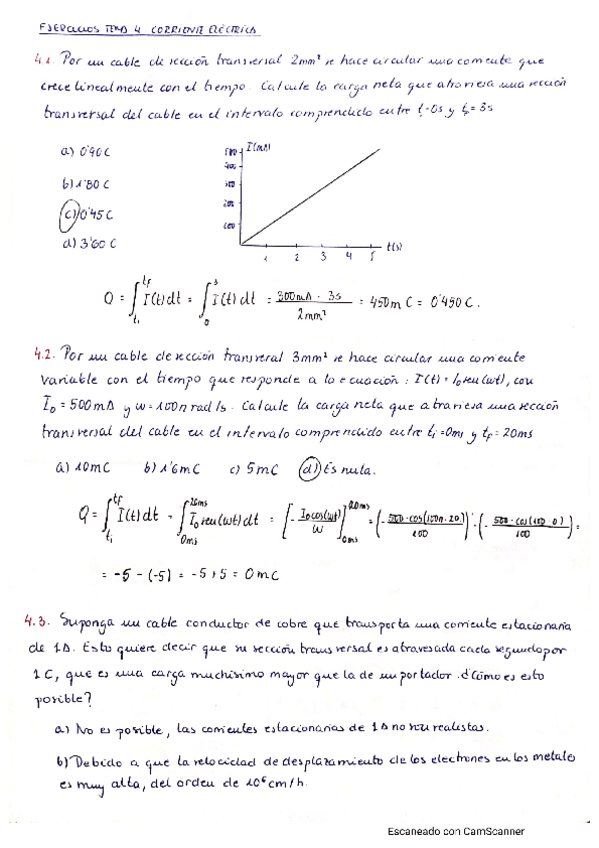 EJERCICIOS TEMA 4 CORRIENTE ELÉCTRICA
4.1. Por un cable de sección transversal 2mm² se hace circular una corriente que
crece linealmente con el tiempo. Calcule la carga neta que atraviesa una sección
transversal del cable en el intervalo comprendido entre ti=0s y tf=3s
a) 0'90 C
b) 1'80 C
c) 0'45 C
d) 3'60 C
I(mA)
500
400
300
200
100
1 2 3 4 5 t(s)
Q = ∫ti^tf I(t)dt = ∫0^3 I(t) dt = 300mA · 3s / 2mm² = 450m C = 0'450 C.
4.2. Por un cable de sección transversal 3mm² se hace circular una corriente
variable con el tiempo que responde a la ecuación: I(t) = I₀ seu(wt), con
I₀ = 500mA y w = 100π rad/s. Calcule la carga neta que atraviesa una sección
transversal del cable en el intervalo comprendido entre ti=0ms y tf=20ms
a) 10mC b) 1'6mC c) 5mC d) Es nula.
Q = ∫ti^tf I(t)dt = ∫0ms^20ms I₀ seu(wt)dt = [- I₀cos(wt) / w]0ms^20ms = (- 500·cos(100π·20) / 100) - (- 500·cos(100·0) / 100) =
= -5 - (-5) = -5+5 = 0 mC
4.3. Suponga un cable conductor de cobre que transporta una corriente estacionaria
de 1A. Esto quiere decir que su sección transversal es atravesada cada segundo por
1C, que es una carga muchísimo mayor que la de un portador. ¿Cómo es esto
posible?
a) No es posible, las corrientes estacionarias de 1A no son realistas.
b) Debido a que la velocidad de desplazamiento de los electrones en los metales
es muy alta, del orden de 10⁶ cm/h.
Escaneado con CamScanner